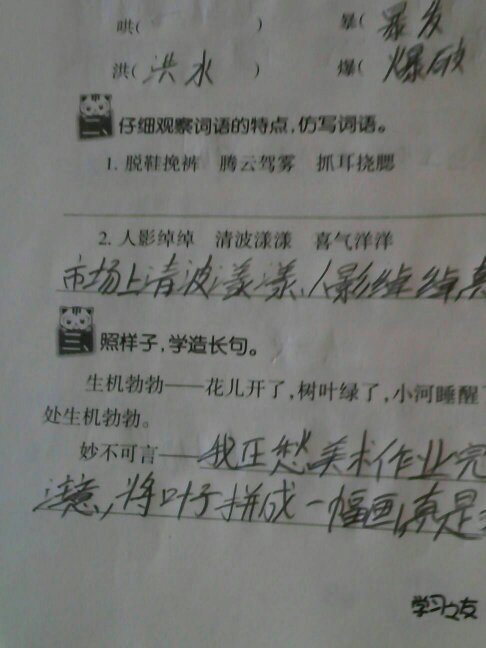 哄(　　　) 暴(暴发
洪(洪水　) 爆(爆破
二、仔细观察词语的特点,仿写词语。
1. 脱鞋挽裤　腾云驾雾　抓耳挠腮
2. 人影绰绰　清波漾漾　喜气洋洋
市场上清波漾漾、人影绰绰,真
三、照样子,学造长句。
生机勃勃——花儿开了,树叶绿了,小河睡醒了
处生机勃勃。
妙不可言——我正愁美术作业完
注意,将叶子拼成一幅画,真是
学习之友